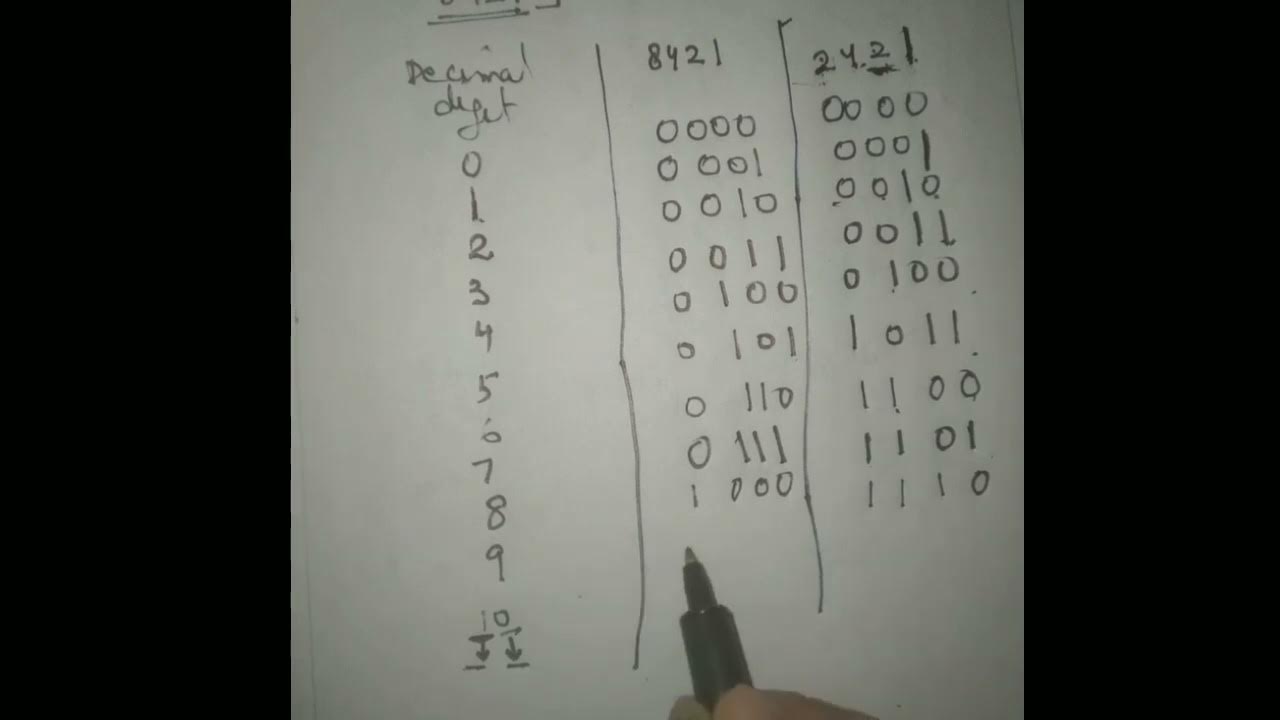 Decimal digit 8421 2421
0 0000 0000
1 0001 0001
2 0010 0010
3 0011 0011
4 0100 0100
5 0101 1011
6 0110 1100
7 0111 1101
8 1000 1110
9
10